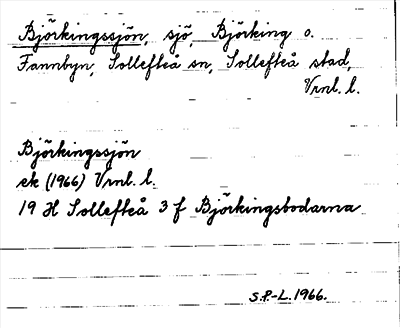 Björkingssjön, sjö, Björking o.
Fannbyn, Sollefteå sn, Sollefteå stad,
Vrnl. l.
Björkingssjön
ek (1966) Vrnl. l.
19 H Sollefteå 3 f Björkingsbodarna
S.P.-L. 1966.